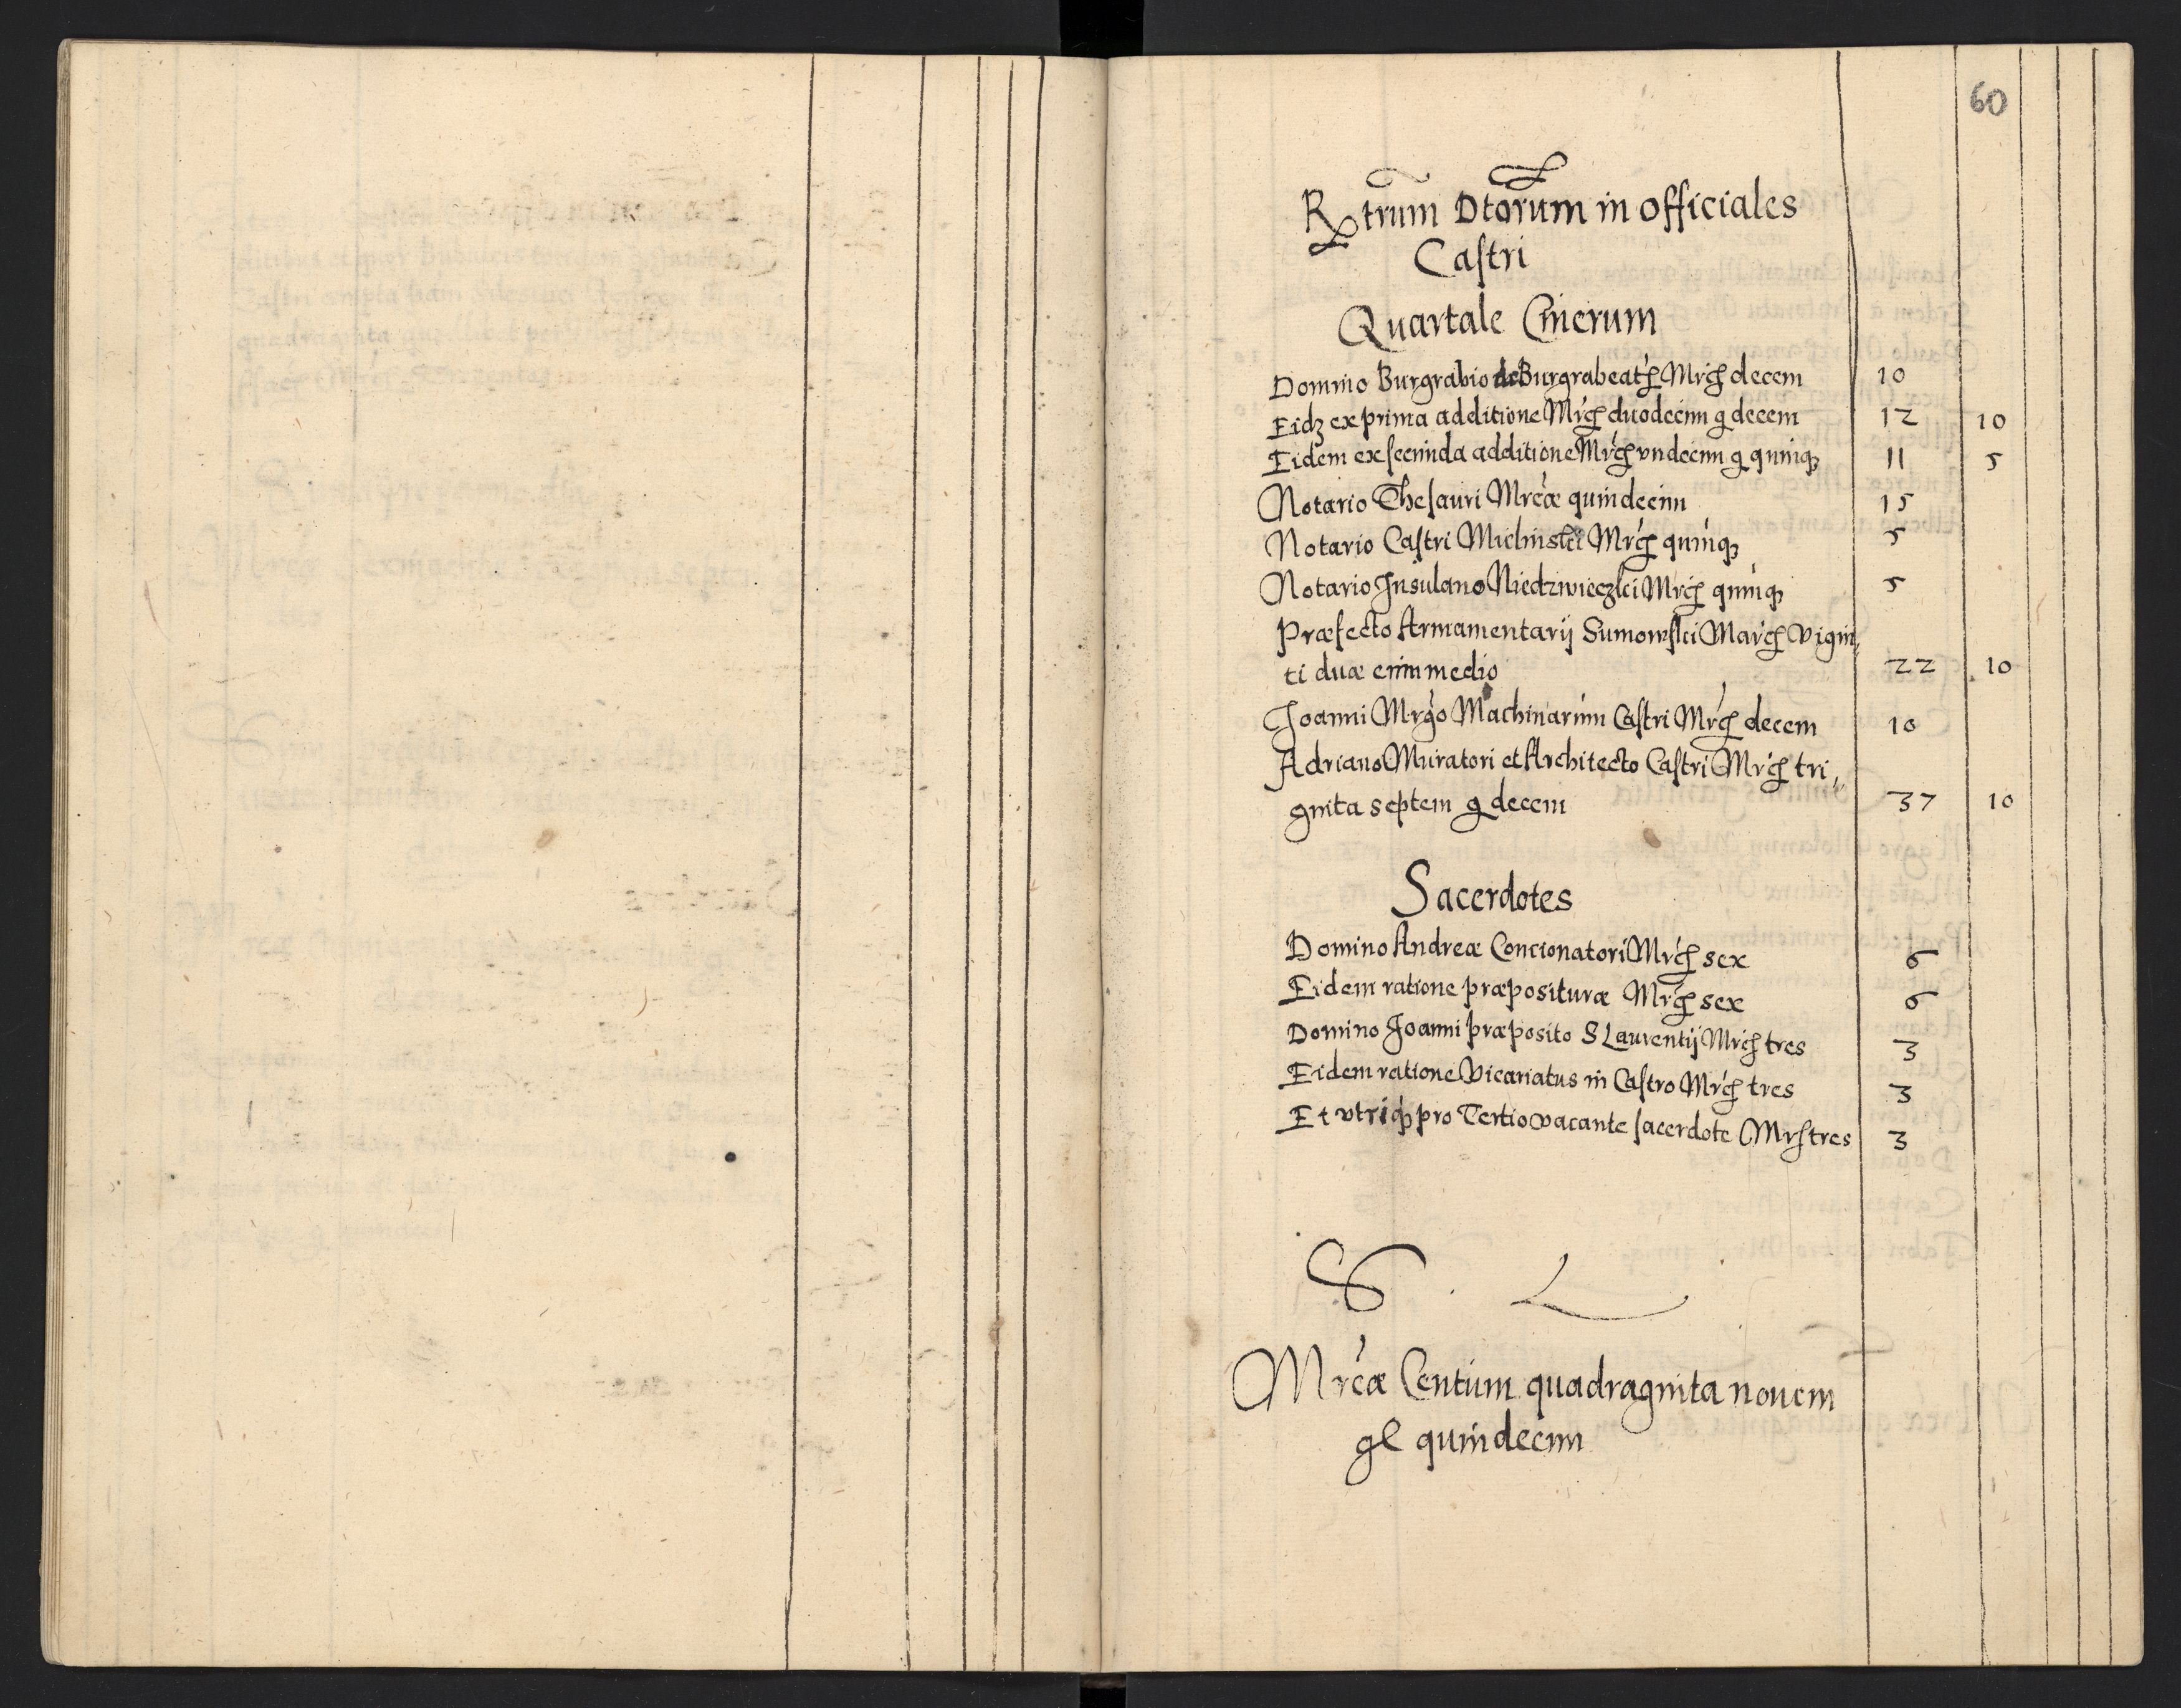 60
Rtrum Dtorum in officiales
Castri
Quartale Cinerum
Domino Burgrabio de Burgrabeatu Mrcę decem 10
Eidz ex prima additione Mrcę duodecim g decem 12 10
Eidem ex secunda additione Mrcę vndecim g quinqȝ 11 5
Notario Thesauri Mrcæ quindecim 15
Notario Castri Mielinski Mrcę quinqȝ 5
Notario Insulano Niedzwieczki Mrcę quinqȝ 5
Præfecto Armamentarij Sumowski Marcę vigin„
ti duæ cum medio 22 10
Joanni Mrgo Machinarum Castri Mrcę decem 10
Adriano Muratori et Architecto Castri Mrcę tri„
ginta septem g decem 37 10
Sacerdotes
Domino Andreæ Concionatori Mrcę sex 6
Eidem ratione præposituræ Mrcę sex 6
Domino Joanni præposito S Laurentij Mrcę tres 3
Eidem ratione Vicariatus in Castro Mrcę tres 3
Et vtriqȝ pro Tertio vacante sacerdote Mrc tres 3
Mrcæ Centum quadraginta nouem
gl quindecim